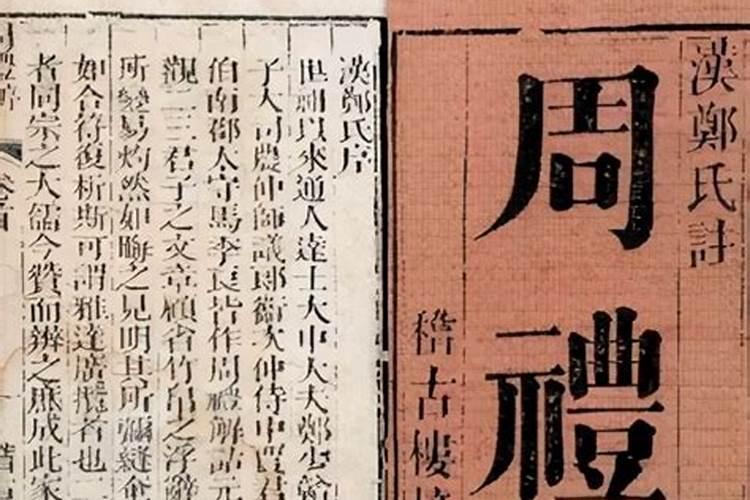 漢鄭氏註
周禮
稽古樓
漢鄭氏序
世祖以來通人達士大中大夫鄭少贛
子大司農仲師議郎衛次仲侍中賈君
伯南郡太守馬季長皆作周禮解詁元
觀二三君子之文章顧省竹帛之浮辭
所變易灼然如晦之見明其所彌縫奄
如合符復析斯可謂雅達廣攬者也二
者同宗之大儒今贊而辨之庶成此家
卷首